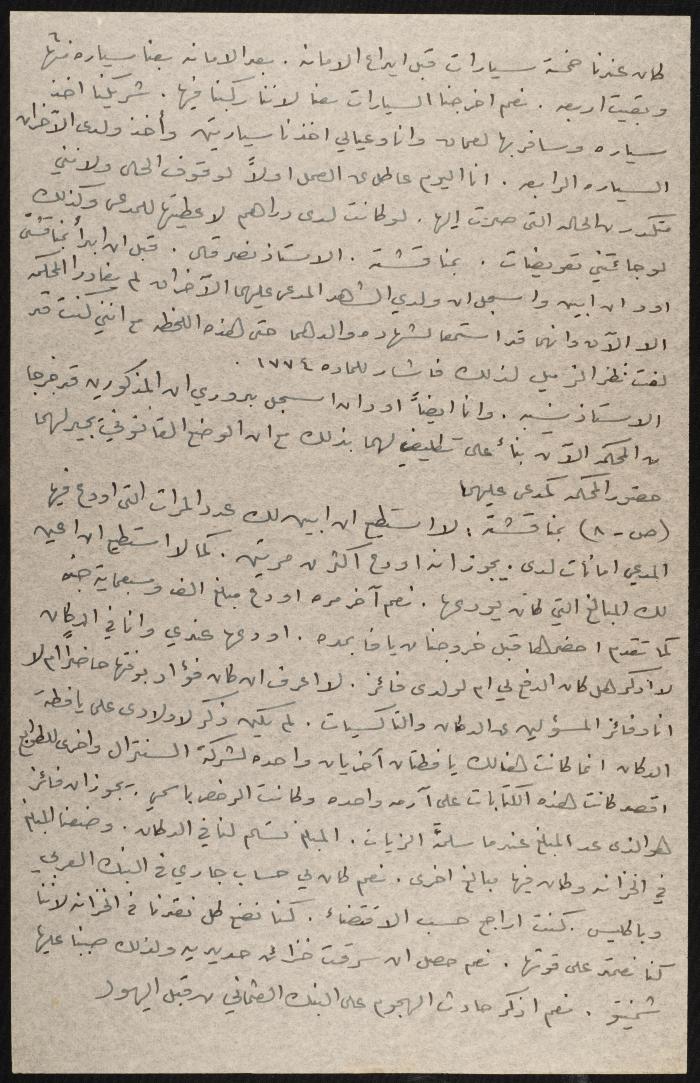 كان عندنا خمسة سيارات قبل ايداع الامانه . بعد الامانه بعنا سياره منها
وبقيت اربعه . نعم اخرجنا السيارات معنا لاننا ركبنا فيها . شريكنا اخذ
سياره وسافر بها لعمان وانا وعيالي اخذنا سيارتين وأخذ ولدى الآخران
السياره الرابعه . انا اليوم عاطل عن العمل اولاً لوقوف الحال ولانني
متكدر من الحاله التي صرت إلها . لو كانت لدى دراهم لاعطيتها للمدعي وكذلك
لو جائتني تعويضات . بمناقشة . الاستاذ نصر قال . قبل ان ابدأ بمناقشتي
اود ان ابين واسجل ان ولدي الشاهد المدعى عليهما الآخران لم يغادرا المحكمه
الا الآن وانهما قد استمعا لشهادة والدهما حتى هذه اللحظه مع انني كنت قد
لفت نظر الزميل لذلك فاشار للماده ١٧٧٤ .
الاستاذ . وانا ايضاً اود ان اسجل بدوري ان المذكورين قد خرجا
من المحكمه الآن بناءً على تكليفي لهما بذلك مع ان الوضع القانوني يجيز لهما
حضور المحكمه كمدعى عليهما
(ص - ٨) بمناقشة : لا استطيع ان ابين لك عدد المرات التي اودع فيها
المدعي امانات لدى . يجوز انه اودع اكثر من مرتين . كما لا استطيع ان اعين
لك المبالغ التي كان يودعها . نعم آخر مره اودع مبلغ الف وسبعماية جنيه
كما تقدم احضرها قبل خروجنا من يافا بمده . اودعها عندي وانا في الدكان
لا اذكر هل كان الدفع لي ام لولدى فائز . لا اعرف ان كان فؤاد بوقتها حاضراً ام لا
انا وفائز المسؤولين عن الدكان والتاكسيات . لم يكن ذكر لاولادى على يافطة
الدكان انما كانت هنالك يافطتان آخريان واحده لشركة السنترال واخرى للطوابع
اقصد كانت هذه الكتابات على آرمه واحده وكانت الرخص باسمي . يجوز ان فائز
هو الذى عد المبلغ عندما سلمنا الزيات . المبلغ تسلم لنا في الدكان . وضعنا المبلغ
في الخزانه وكان فيها مبالغ اخرى . نعم كان لي حساب جاري في البنك العربي
وباركليس . كنت اراجع حسب الاقتضاء . كنا نضع كل نقودنا في الخزانه لاننا
كنا نعتمد على قوتها . نعم حصل ان سرقت خزائن حديديه ولذلك صبينا عليها
. نعم اذكر حادث الهجوم على البنك العثماني من قبل اليهود